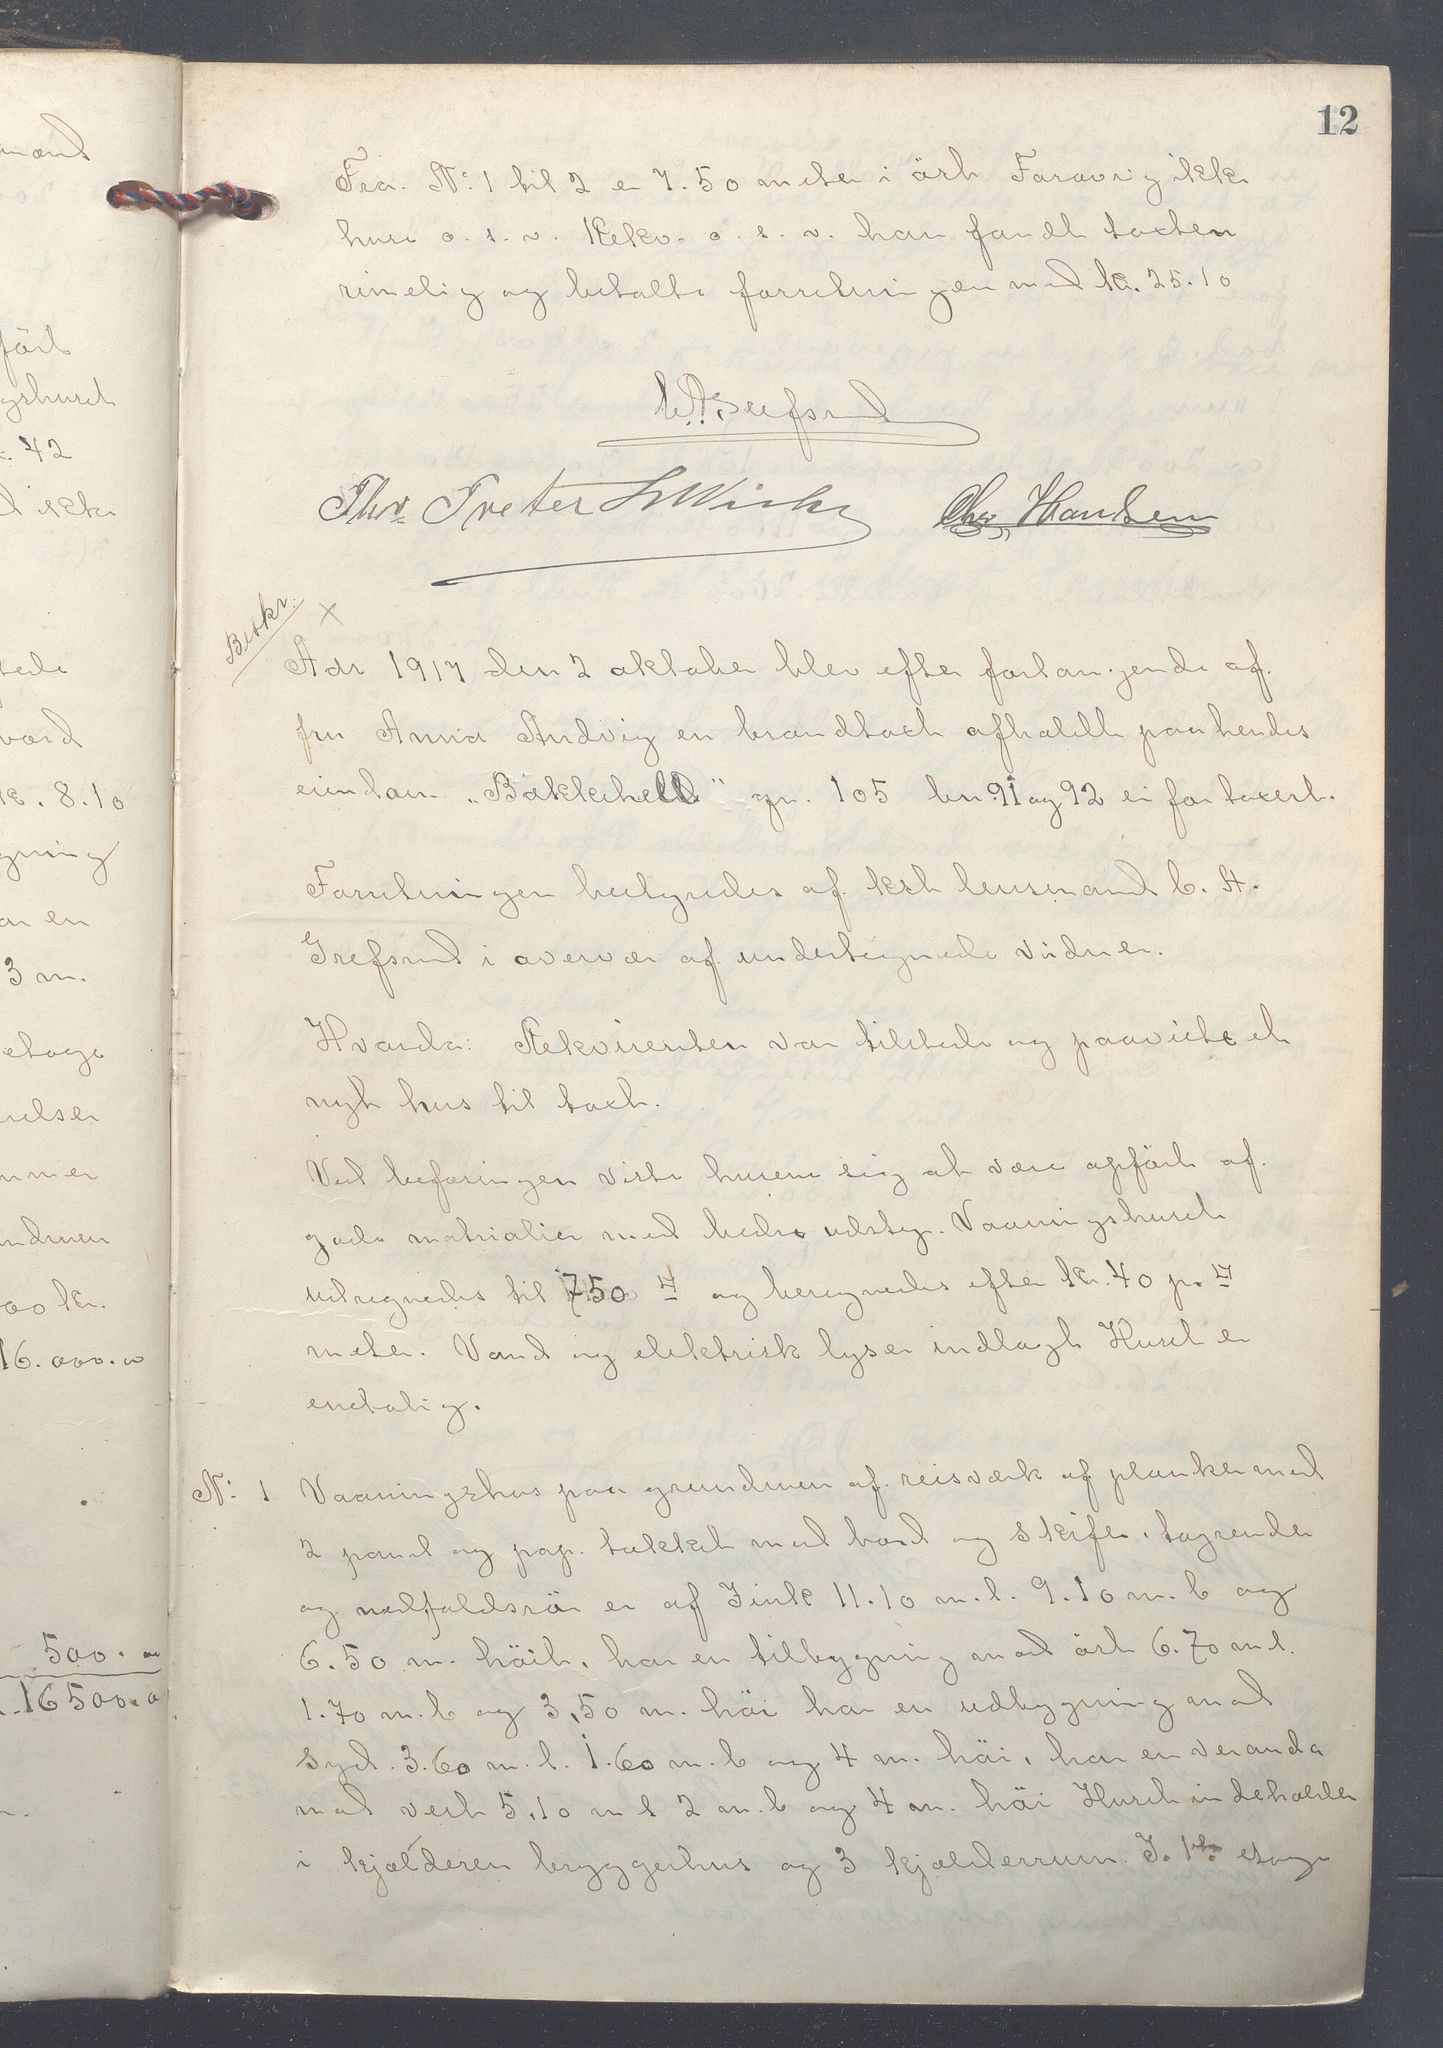 12
Fra. No: 1 til 2 er 7.50 meter i öst Forøvrig ikke
huse o. s. v. Rekv. o. s. v. han fandt taxten
rimelig og betalte forretningen med kr. 25.10
C. A. Grefsrud
Thv. Tveter Chr Hansen
Beskr. x
Aar 1917 den 2 oktober blev efter forlangende af.
fru Anna Andvig en brandtaxt afholdt paa hendes
eiendom „Bakkehell" gn. 105 bn 91 og 92 ei før taxert.
Forretningen bestyredes af kst lensmand C. A.
Grefsrud i overvær af undertegnede vidner.
Hvorda: Rekvirenten var tilstede og paaviste et
nyt hus til taxt.
Ved befaringen viste husene sig at være opfört af.
gode matrialier med bedre udstyr. Vaaningshuset
udregnedes til 750 □ og beregnedes efter kr. 40 pr. □
meter. Vand og elektrisk lys er indlagt Huset er
enetalig.
No: 1 Vaaningshus paa grundmur af. reisværk af planker med
2 panel og pap. tækket med bord og skifer. tagrender
og nedfaldsrör er af Zink 11.10 m. l. 9.10 m. b og
6.50 m. höit. har en tilbygning mod öst 6.70 m l.
1.70 m. b og 3,50 m. höi har en udbygning mod
syd. 3.60 m. l. 1.60 m. b og 4 m. höi. har en veranda
mod vest 5,10 m l 2 m. b og 4 m. höi Huset indeholder
i kjælderen bryggerhus og 3 kjælderrum. I. 1ste etage
færd
gshuset
42
ikke
kr. 8.10
gning
ar en
3 m.
etage
elser
mmer
ndmur
00 kr.
16.000.00
500.00
16500.0